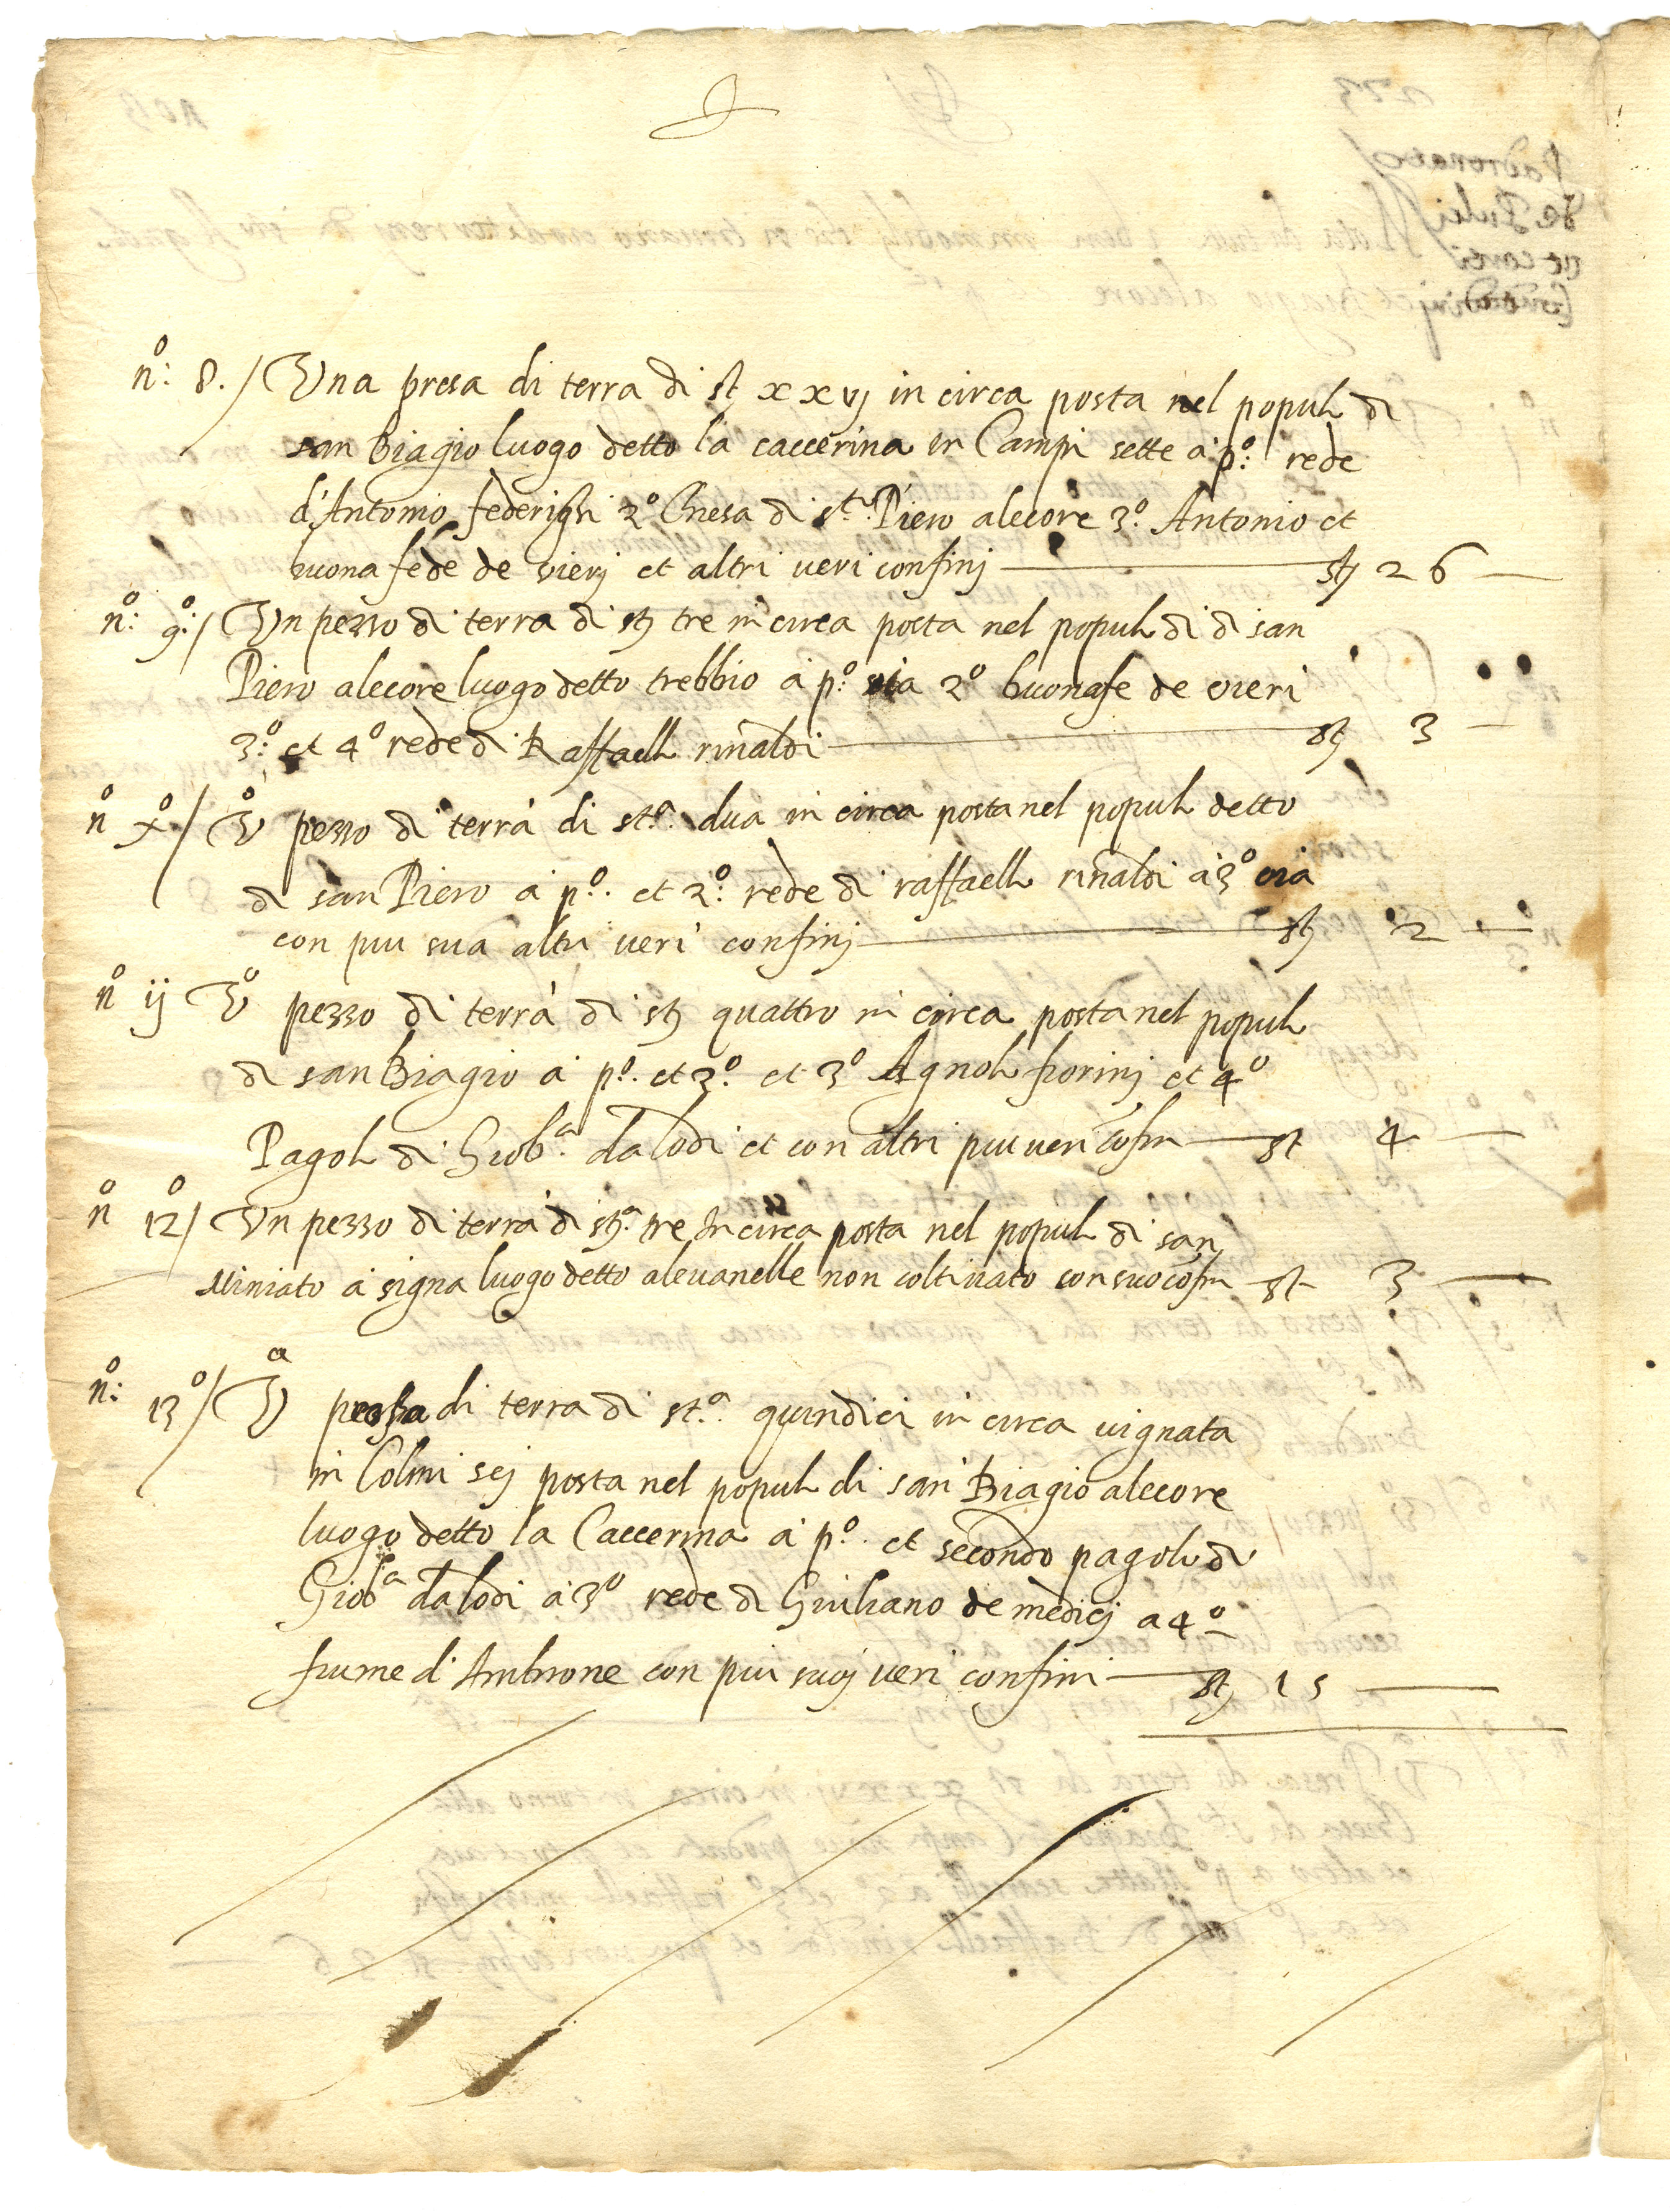 n:o 8./ Una presa di terra di st xxvj in circa posta nel popul di
san Biagio luogo detto la caccerina in Campi sette a p.o rede
d'Antonio federighi 2.o Chiesa di s.to Piero alecore 3.o Antonio et
buona fede de vierj et altri veri confinj st 26
n:o 9:o/ Un pezzo di terra di st tre in circa posta nel popul di di san
Piero alecore luogo detto trebbio a p.o via 2o buonafe de vieri
3:o et 4o rede di Raffaell rinaldi st 3
no xo/ Vo pezzo di terra di st.a dua in circa posta nel popul detto
di san Piero a p.o et 2.o rede di raffaell rinaldi a 3o via
con piu sua altri veri confinj st 2
no ij Vo pezzo di terra di st quattro in circa posta nel popul
di san Biagio a p.o et 2.o et 3o Agnol fiorinj et 4o
Pagol di Giob.a da lodi et con altri piu veri cofin st 4
no 12o/ Un pezzo di terra di st.a tre In circa posta nel popul di san
Miniato a signa luogo detto alevanelle non coltivato con suo cofin st 3
n:o 13o/ Va di terra di st.a quindici in circa vignata
in Colmi sej posta nel popul di san Biagio alecore
luogo detto la Caccerina a p.o et secondo pagol di
Gioba da lodi a 3o rede di Giuliano de medicj a 4o
fiume d'Ambrone con piu suoj veri confini st 15